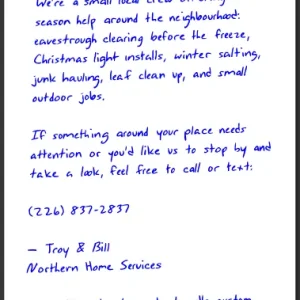 We're a small local crew
season help around the neighbourhood:
eavestrough clearing before the freeze,
Christmas light installs, winter salting,
junk hauling, leaf clean up, and small
outdoor jobs.
If something around your place needs
attention or you'd like us to stop by and
take a look, feel free to call or text:
(226) 837-2837
— Troy & Bill
Northern Home Services